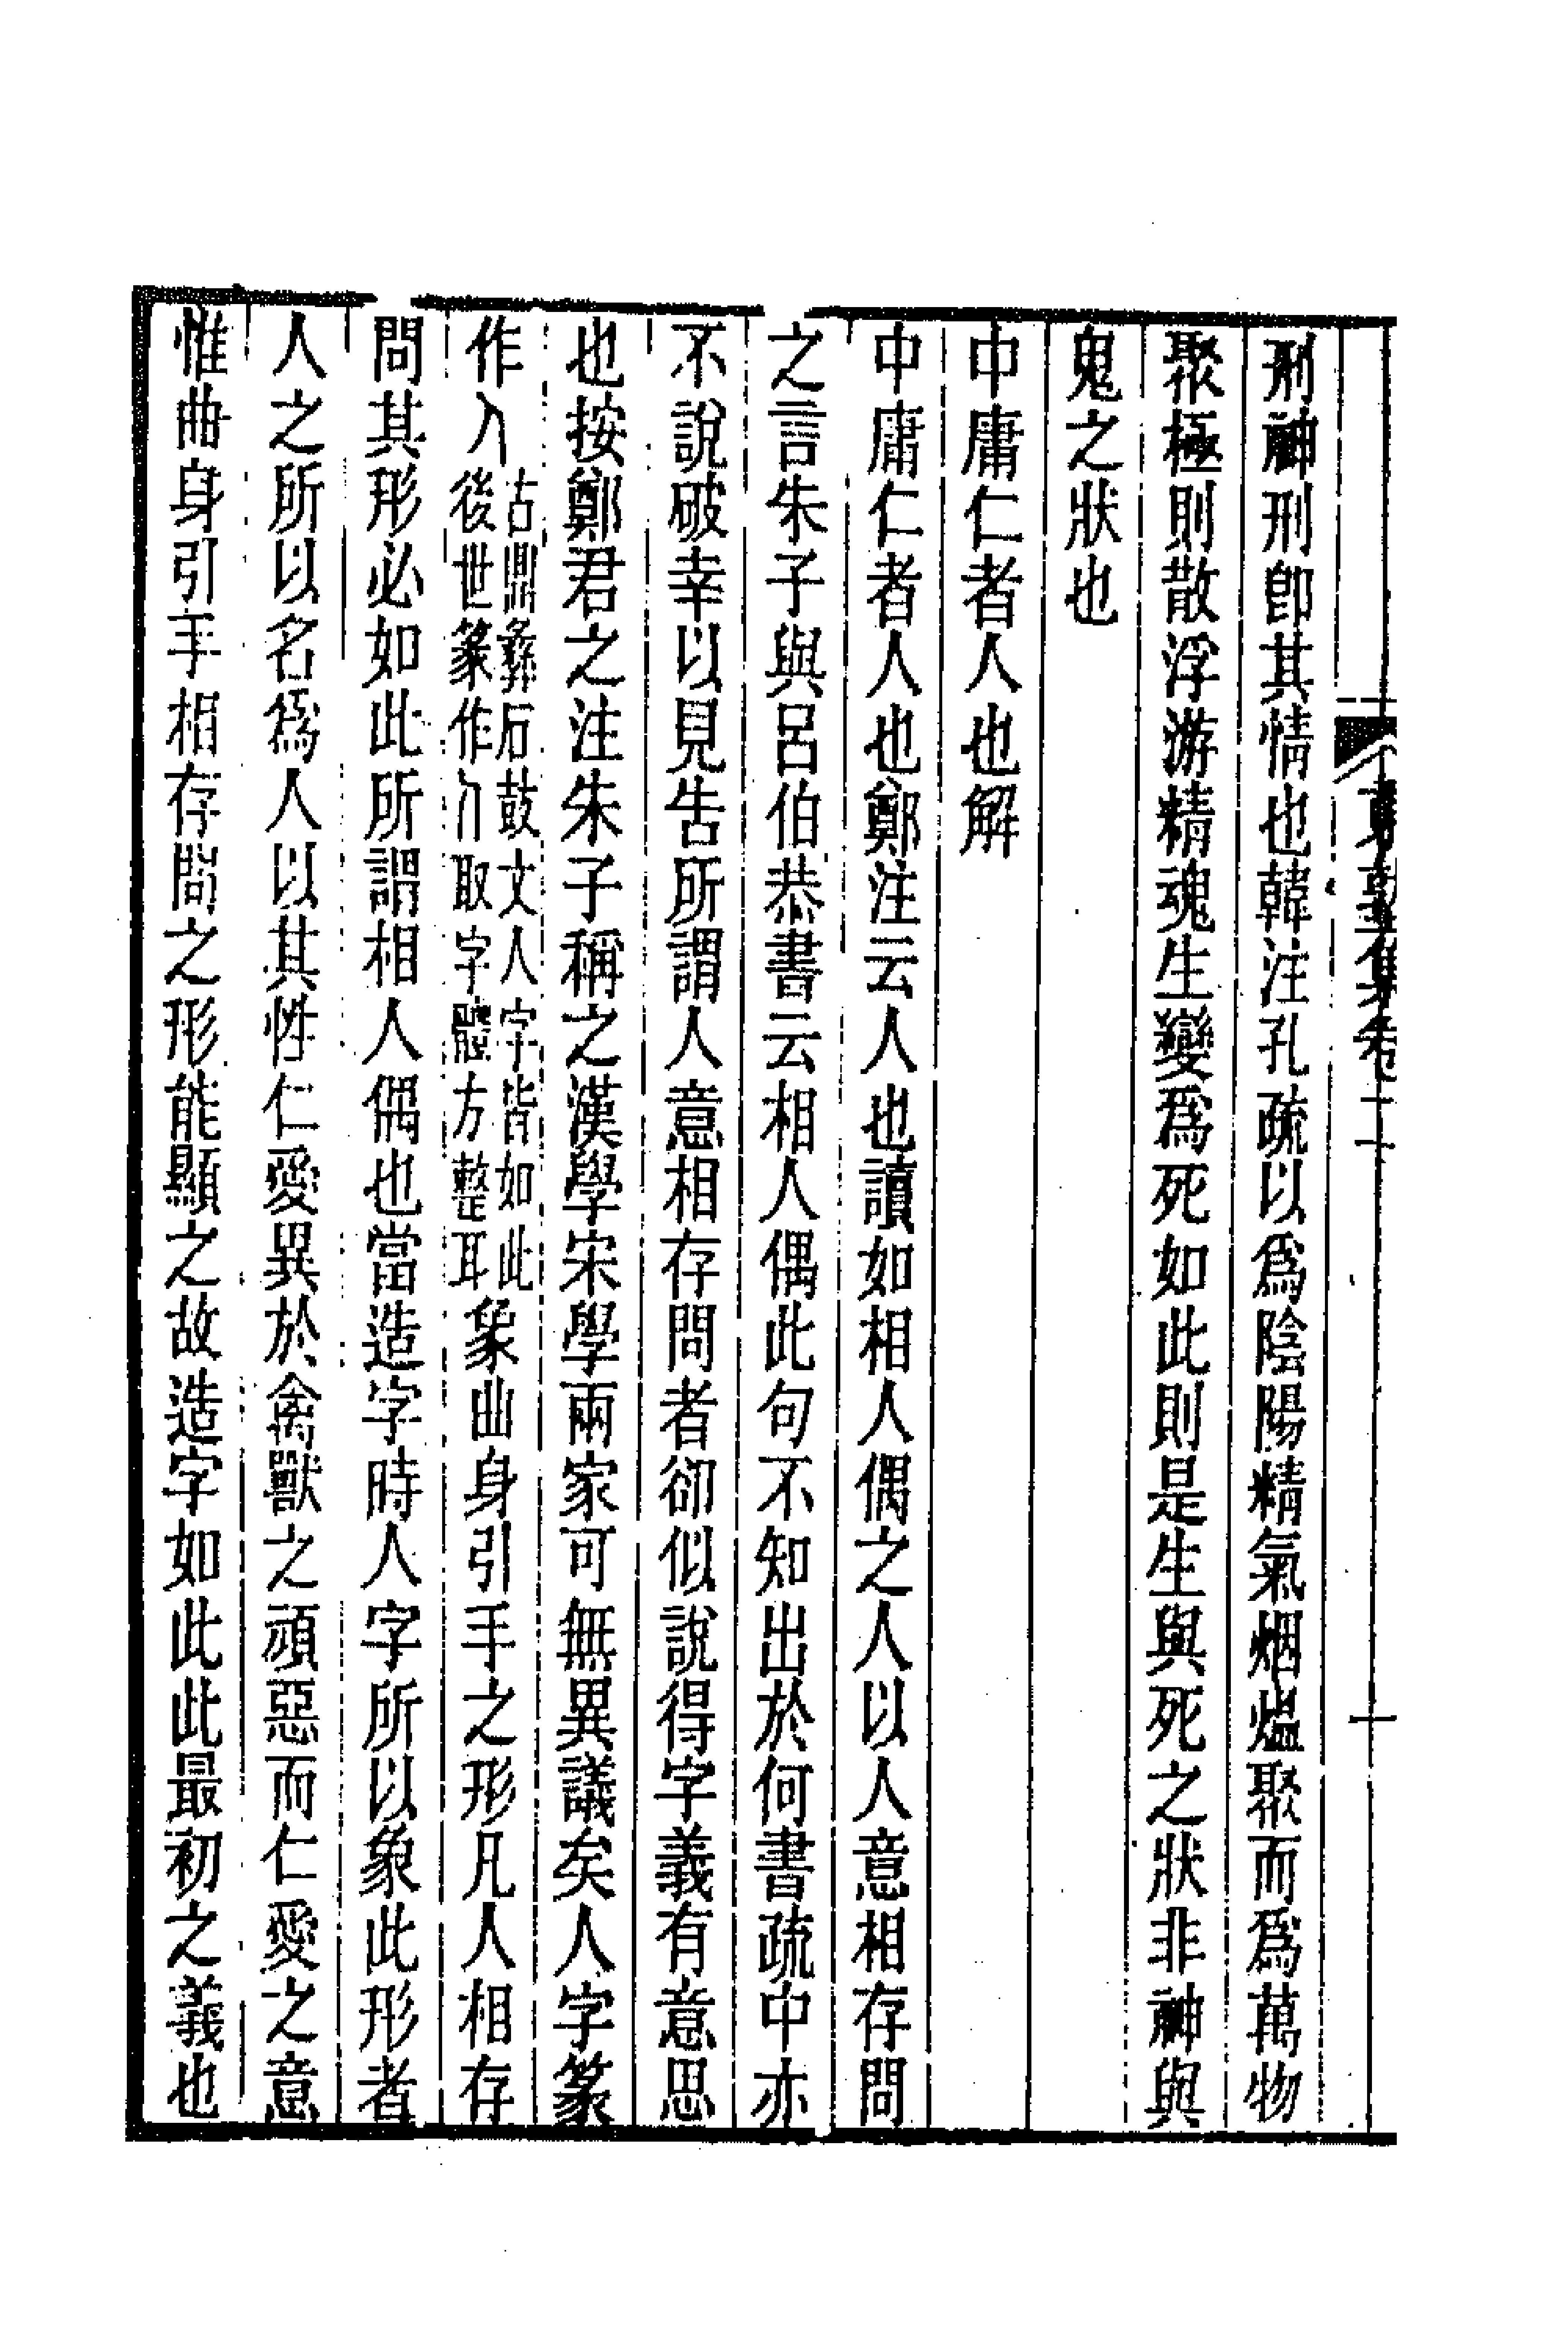 東塾集卷二 十
刑神刑卽其情也韓注孔疏以爲陰陽精氣烟熅聚而爲萬物
聚極則散浮游精魂生變爲死如此則是生與死之狀非神與
鬼之狀也
中庸仁者人也解
中庸仁者人也鄭注云人也讀如相人偶之人以人意相存問
之言朱子與呂伯恭書云相人偶此句不知出於何書疏中亦
不說破幸以見告所謂人意相存問者卻似說得字義有意思
也按鄭君之注朱子稱之漢學宋學兩家可無異議矣人字篆
作人古鼎彝石鼓文人字皆如此後世篆作人取字體方整耳象曲身引手之形凡人相存
問其形必如此所謂相人偶也當造字時人字所以象此形者
人之所以名爲人以其性仁愛異於禽獸之頑惡而仁愛之意
惟曲身引手相存問之形能顯之故造字如此此最初之義也